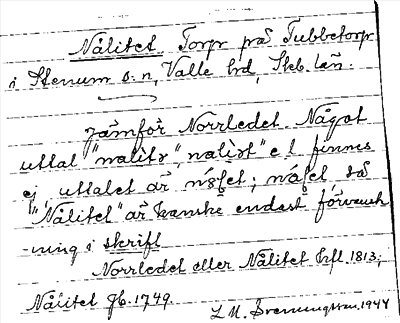 Nålitet. Torp på Tubbetorp
i Stenum s:n, Valle hd, Skb. län.
Jämför Norrledet. Något
uttal "nalitə", nalit" e l finnes
ej, uttalet är
"Nålitet" är kanske endast förvansk
-ning i skrift
Norrledet eller Nålitet hfl. 1813;
Nålitet Jb. 1749.
1944